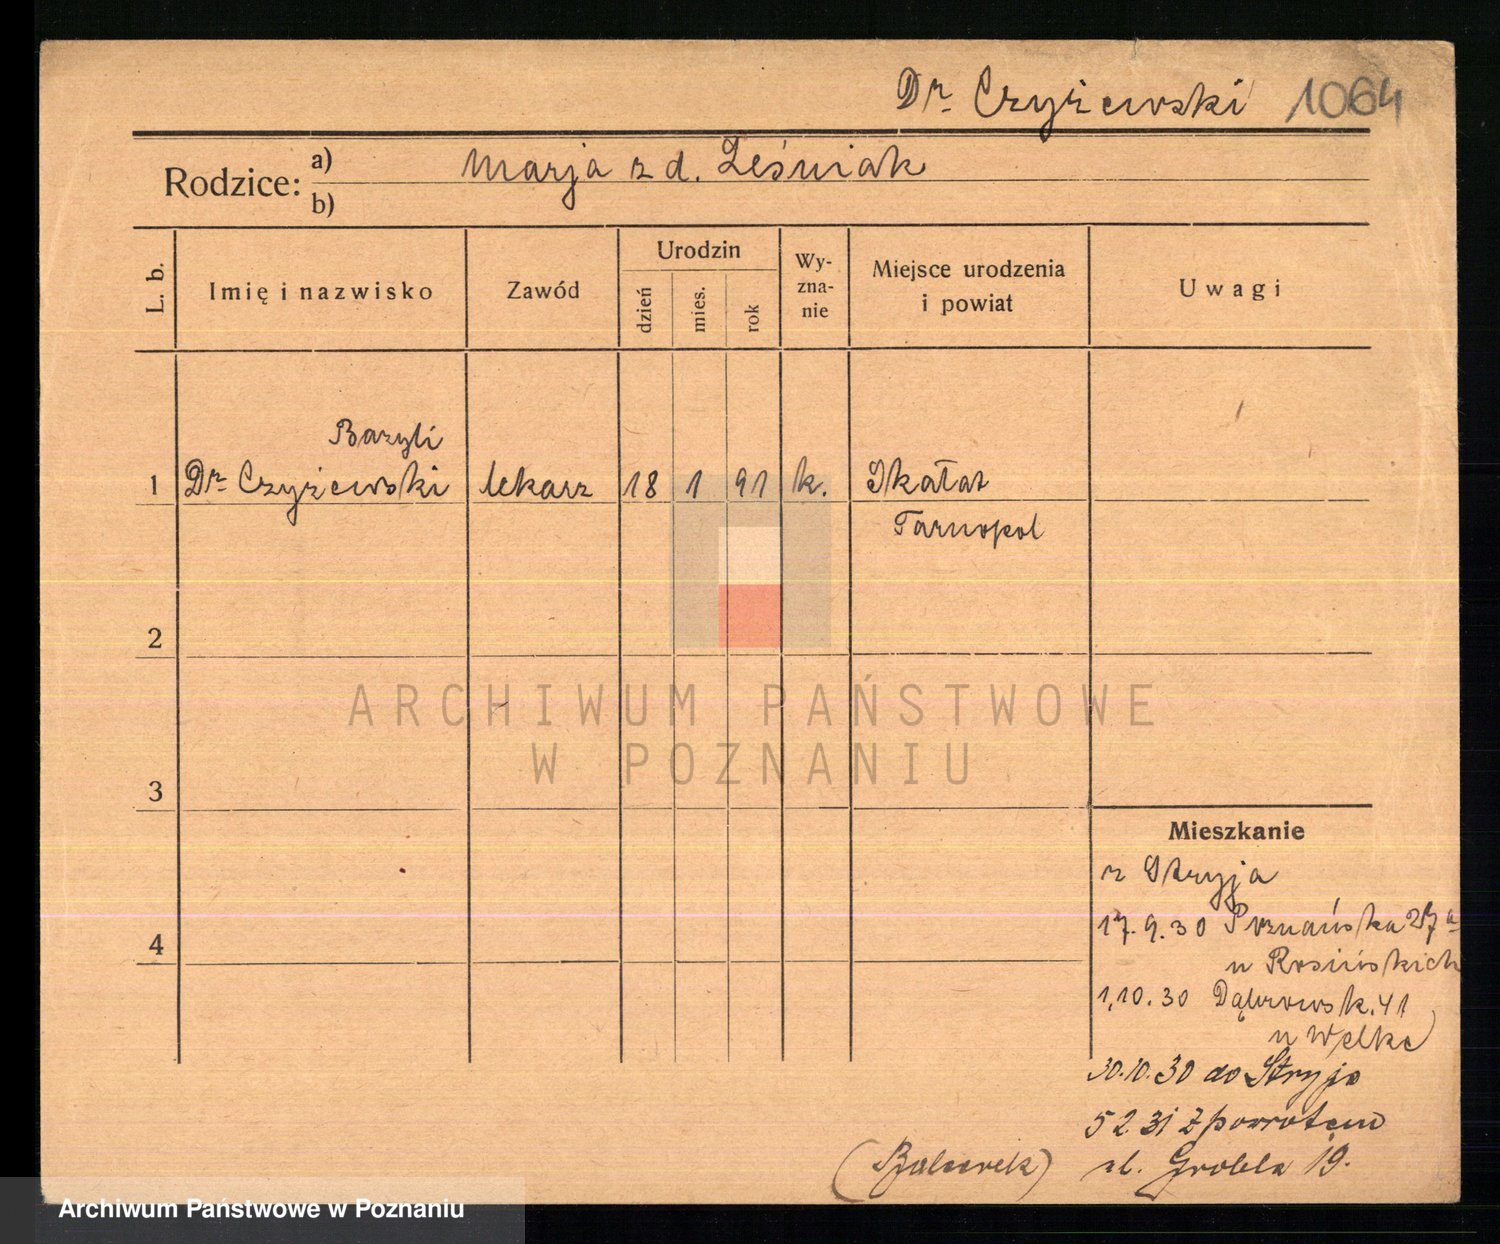 Dr. Czyżewski 1064
Rodzice:
a) Marja z d. Leśniak
b)
L. b.
Imię i nazwisko
Zawód
Urodzin
dzień
mies.
rok
Wy-
zna-
nie
Miejsce urodzenia
i powiat
Uwagi
Bazyli
1 Dr. Czyżewski lekarz 18 1 91 k. Skałat
Tarnopol
2
ARCHIWUM PAŃSTWOWE
W POZNANIU
3
Mieszkanie
z Stryja
17.9.30 Poznańska 27a
u Rosińskich
4
1.10.30 Dąbrowsk. 41
u Welke
30.10.30 do Stryja
5 2 31 z powrotem
ul. Grobla 19.
Archiwum Państwowe w Poznaniu